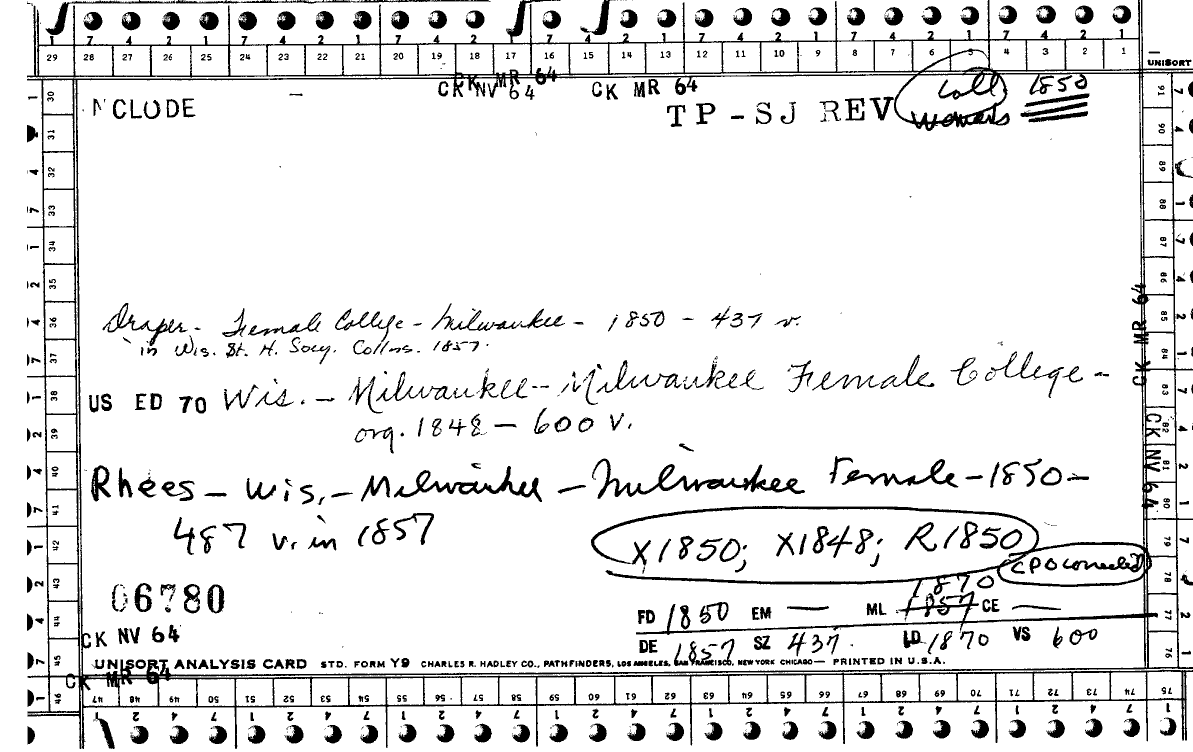 7 4 2 1 7 4 2 1 7 4 2 1 7 4 2 1 7 4 2 1 7 4 2 1 7 4 2 1
29 28 27 26 25 24 23 22 21 20 19 18 17 16 15 14 13 12 11 10 9 8 7 6 5 4 3 2 1
UNISORT
CK MR 64
CK NV 64 CK MR 64
NCLODE TP-SJ REV Coll 1850
Womans
Draper - Female College - Milwaukee - 1850 - 437 v.
in Wis. St. H. Socy. Collns. 1857.
US ED 70 Wis. - Milwaukee - Milwaukee Female College -
org. 1848 - 600 v.
Rhees - Wis. - Milwaukee - Milwaukee Female - 1850 -
487 v. in 1857
X1850; X1848; R1850
CPO corrected
06780
1870
FD 1850 EM — ML 1857 CE —
DE 1857 SZ 437. LD 1870 VS 600
CK NV 64
UNISORT ANALYSIS CARD STD. FORM Y9 CHARLES R. HADLEY CO., PATHFINDERS, LOS ANGELES, SAN FRANCISCO, NEW YORK CHICAGO — PRINTED IN U.S.A.
CK MR 64
47 48 49 50 51 52 53 54 55 56 57 58 59 60 61 62 63 64 65 66 67 68 69 70 71 72 73 74 75
30 31 32 33 34 35 36 37 38 39 40 41 42 43 44 45 46
91 90 89 88 87 86 85 84 83 82 81 80 79 78 77 76
CK MR 64
CK NV 64